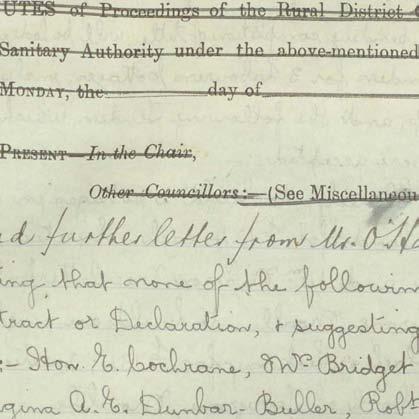 UTES of Proceedings of the Rural District
Sanitary Authority under the above-mentioned
MONDAY, the day of
PRESENT—In the Chair,
Other Councillors:—(See Miscellaneou
d further letter from Mr. O'Ha
ing that none of the followin
tract or Declaration, & suggesting
:- Hon. E. Cochrane, Mrs Bridget
gina A. E. Dunbar-Buller, Robt